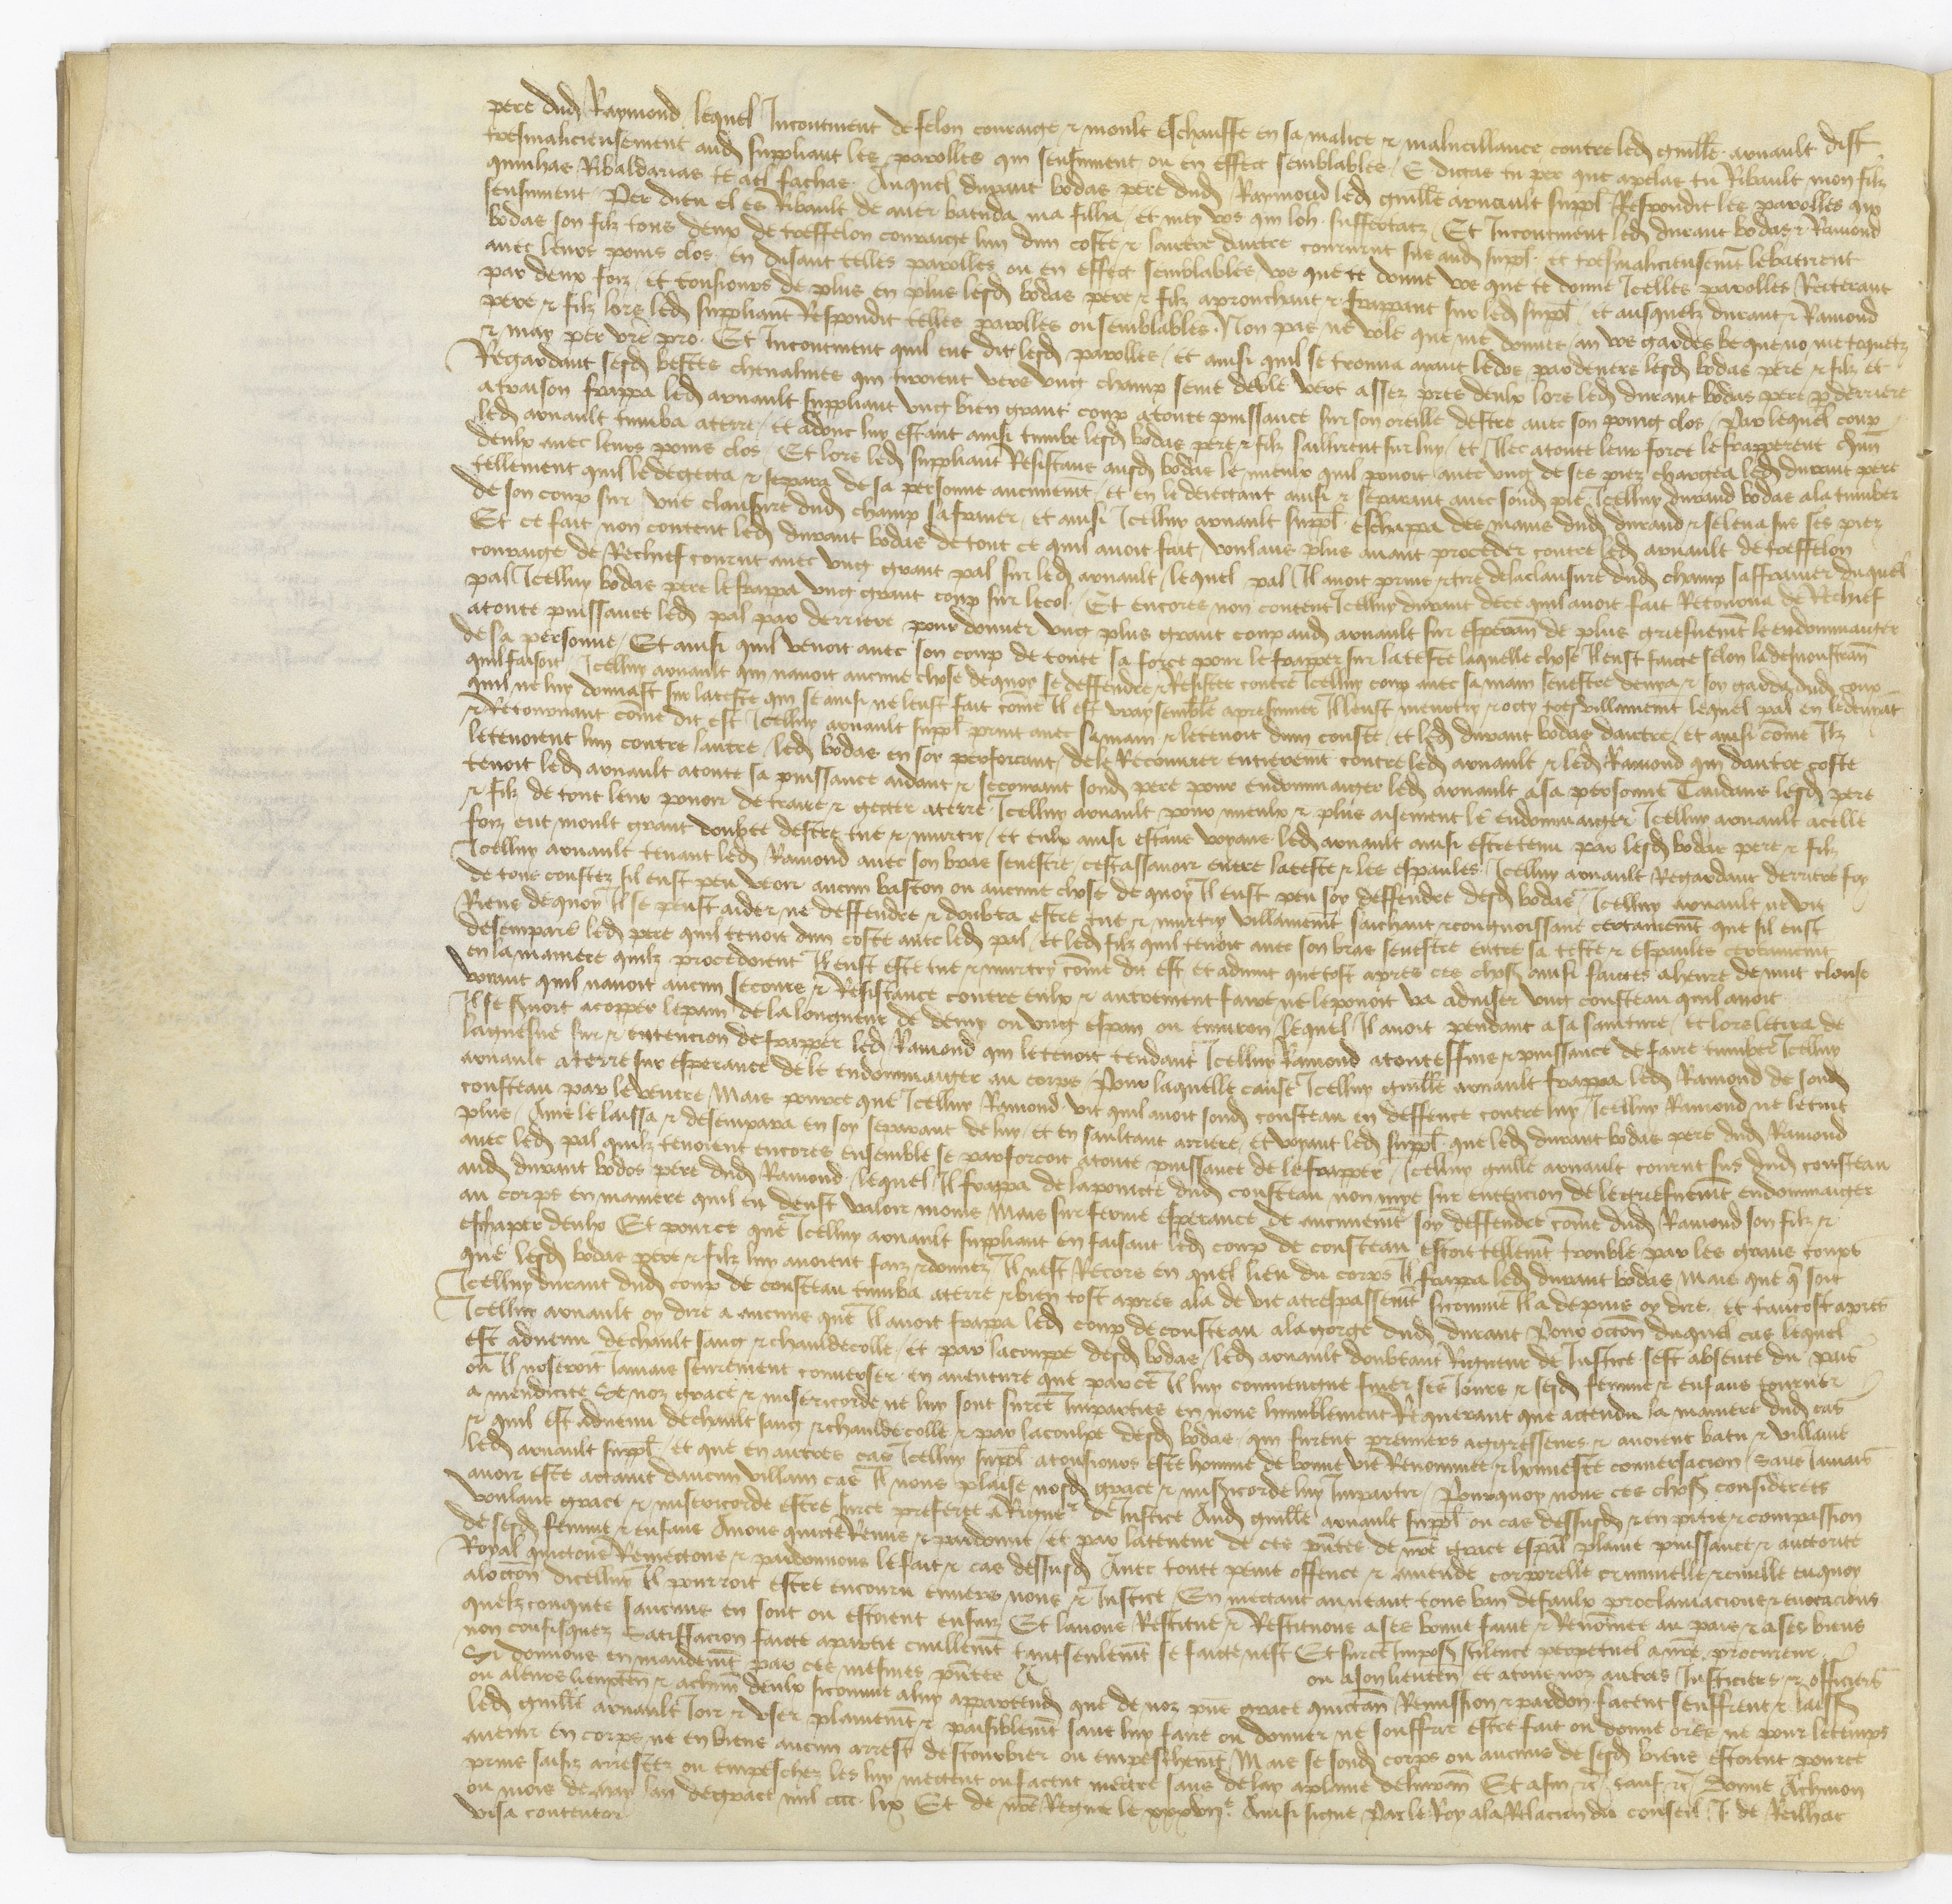 pere dud Raymond lequel Incontinent de felon couraige & moult eschauffe en sa malice & malvueillance contre led guille arnault dist
tresmalicieusement aud suppliant les parolles qui sensuivent ou en effect semblables E digas tu per que apelas tu Ribault mon filz
quinhas Ribaldarias te a el fachas Auquel durant bodas pere dud Raymond led guille arnault suppl Respondit les parolles qui
sensuivent Per dieu el es Ribault de aver batuda ma filha et mey vos qui loh suffertatz Et Incontinent led durant bodas & Ramond
bodas son filz tous deux de tresfelon couraige lun dun coste & lautre dautre coururent sus aud suppl et tresmalicieusemt le batirent
avec leurs poins clos en disant telles parolles ou en effect semblables vos que te donne vos que te donne Icelles parolles Reiterant
par deux foiz et tousiours de plus en plus lesd bodas pere & filz aprouchant & frappant sur led suppl et ausquelz durant & Ramond
pere & filz lors led suppliant Respondit telles parolles ou semblables Non pas ne vole que me donnes an vos gardes be que no me toquetz
& may per vre pro Et Incontinent quil eut dit lesd parolles et ainsi quil se trouva avant le dos par devers lesd bodas pere & filz et
Regardant sesd bestes chevalines qui tiroient vers ung champ seme de ble vert assez pres deulx lors led durant bodas pere p derriere
a traison frappa led arnault suppliant ung bien grant coup a toute puissance sur son oreille destre avec son poing clos Par lequel coup
led arnault tumba a terre et adonc luy estant ainsi tumbe lesd bodas pere & filz saillirent sur luy et Illec a toute leur force le frapperent chun
deulx avec leurs poins clos Et lors led suppliant Resistans ausd bodas le mieulx quil povoit avec ung de ses piez chargea led durant pere
tellement quil le degecta & separa de sa personne aucunemt et en le degectant ainsi & separant avec sond pie Icelluy durand bodas ala tumber
de son coup sur une clausure dud champ safranier et ainsi Icelluy arnault suppl eschappa des mains dud durand & se leva sus ses piez
Et ce fait non content led durant bodas de tout ce quil avoit fait voulans plus avant proceder contre led arnault de tresfelon
couraige de Rechief courut avec ung grant pal sur led arnault lequel pal Il avoit prins & tire de la clausure dud champ saffranier duquel
pal Icelluy bodas pere le frappa ung grant coup sur le col Et encores non content Icelluy durant de ce quil avoit fait Retourna de Rechief
a toute puissance led pal par derriere pour donner ung plus grant coup aud arnault sur esperan de plus griefvemt le endommaiger
de sa personne Et ainsi quil venoit avec son coup de toute sa force pour le frapper sur la teste laquelle chose Il eust faicte selon la demonstran
quil faisoit Icelluy arnault qui navoit aucune chose de quoy se deffendre & Resister contre Icelluy coup avec sa main senestre devya & soy garda dud coup
quil ne luy donnast sur la teste qui se ainsi ne leust fait come Il est vraysemble a presumer Il leust meurtry & occy tres villainemt lequel pal en le devirat
& Retournant come dit est Icelluy arnault suppl print avec sa main & le tenoit dun couste et led durant bodas dautre et ainsi come Ilz
le tenoient lun contre lautre led bodas en soy perforcant de le Recouvrer entieremt contre led arnault & led Ramond qui dautre coste
tenoit led arnault a toute sa puissance aidant & secourant sond pere pour endommaiger led arnault a sa personne Tandans lesd pere
& filz de tout leur povoir de traire & gecter a terre Icelluy arnault pour mieulx & plus aisement le endommaiger Icelluy arnault a celle
foiz eut moult grant doubte destre tue & murtry et eulx ainsi estans voyans led arnault ainsi estre tenu par lesd bodas pere & filz
Icelluy arnault tenant led Ramond avec son bras senestre cestassavoir entre la teste & les espaules Icelluy arnault Regardant derriere soy
de tous coustez sil eust peu veoir aucun baston ou aucune chose de quoy Il eust peu soy deffendre desd bodas Icelluy arnault ne vit
Riens de quoy Il se peust aider ne deffendre & doubta estre tue & murtry villainemt saichant & congnoissant certainemt que sil eust
desempare led pere quil tenoit dun coste avec led pal et led filz quil tenoit avec son bras senestre entre sa teste & espaules certainemt
en la maniere quilz procedoient Il eust este tue & murtry come dit est et advint que tost apres ces choses ainsi faictes a heure de nuit clouse
voyant quil navoit aucun secours & Resistance contre eulx & autrement faire ne le povoit va adviser ung cousteau quil avoit
Il se servoit a copper le pain de la longueur de demy ou ung espan ou environ lequel Il avoit pendant a sa sainture et lors le tira de
la guesne sur & entencion de frapper led Ramond qui le tenoit tendant Icelluy Ramond a toute ffine & puissance de faire tumber Icelluy
arnault a terre sur esperance de le endommaiger au corps Pour laquelle cause Icelluy guille arnault frappa led Ramond de sond
cousteau par le ventre Mais pource que Icelluy Ramond vit quil avoit sond cousteau en deffence contre luy Icelluy Ramond ne le tint
plus Ains le laissa & desempara en soy separant de luy et en saultant arriere et voyant led suppl que led durant bodas pere dud Ramond
avec led pal quilz tenoient encores ensemble se parforcoit a toute puissance de le frapper Icelluy guille arnault courut sus dud cousteau
aud durant bodos pere dud Ramond lequel Il frappa de la poincte dud cousteau non mye sur entencion de le griefvemt endommaiger
au corps en maniere quil en deust valoir moins Mais sur ferme esperance de aucunemt soy deffendre come dud Ramond son filz &
eschaper deulx Et pource que Icelluy arnault suppliant en faisant led coup de cousteau estoit tellemt trouble par les grans coups
que lesd bodas pere & filz luy avoient faiz & donnez Il nest Recors en quel lieu du corps Il frappa led durant bodas Mais que q soit
Icelluy durant dud coup de cousteau tumba a terre & bien tost apres ala de vie a trespassemt sicomme Il a depuis oy dire et tantost apres
Icelluy arnault oy dire a aucuns que Il avoit frappa led coup de cousteau a la gorge dud durant Pour occon duquel cas lequel
est advenu de chault sang & chauldecolle et par la coupe desd bodas led arnault doubtant Rigueur de Justice sest absente du pais
ou Il noseroit Jamais seurement converser en aventure que par ce Il luy conviengne finer ses Jours & sesd femme & enfans tourner
a mendicite Se noz grace & misericorde ne luy sont sur ce Imparties en nous humblement Requerant que actendu la maniere dud cas
& quil est advenu de chault sang & chauldecolle & par la coulpe desd bodas qui furent premiers aggresseurs & avoient batu & villane
led arnault suppl et que en autres cas Icelluy suppl a tousiours este homme de bonne vie Renommee & honneste conversacion sans Jamais
avoir este actaint daucun villain cas Il nous plaise nosd grace & misicorde luy Impartir Pourquoy nous ces choses considerees
voulans grace & misericorde estre sur ce preferee A Rigueur de Justice Aud guille arnault suppl ou cas dessusd & en pitie & compassion
de sesd femme & enfans Avons quicte Remis & pardonne et par la teneur de ces pntes de nre grace espal plaine puissance & auctorite
Royal quictons Remectons & pardonnons le fait & cas dessusd Avec toute peine offence & amende corporelle criminelle & civille en quoy
a loccon dicelluy Il pourroit estre encouru envers nous & Justice En mectant au neant tous ban defaulx proclamacions & evocacions
quelzconques saucuns en sont ou estoient ensuiz Et lavons Restitue & Restituons a ses bonne fame & Renommee au pais & a ses biens
non confisquez Satisfacion faicte a partie civillemt tantseulemt se faicte nest Et sur ce Imposons silence perpetuel a nre procureur
Si donnons en mandemt par ces mesmes pntes A ou a son lieuten et a tous noz autres Justiciers & officiers
ou a leurs lieuxten & a chun deulx sicomme a luy appartend que de noz pnte grace quictan Remission & pardon facent seuffrent & laiss
led guille arnault Joir & user plainemt & paisiblemt sans luy faire ou donner ne souffrir estre fait ou donne ores ne pour le temps
avenir en corps ne en biens aucun arrest destourbier ou empeschemt Mais se sond corps ou aucuns de sesd biens estoient pource
prins saisiz arrestez ou empeschez les luy mectent ou facent mectre sans delay a plaine delivran Et afin etc sauf etc Donne A chinon
ou mois de may lan de grace mil cccc lix Et de nre Regne le xxxvije Ainsi signe Par le Roy a la Relacion du conseil J de Reilhac
visa contentor